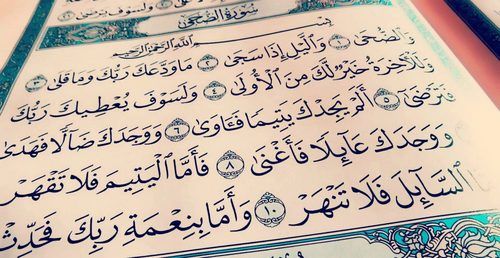 وَلَسَوْفَ يَرْضَىٰ
سُورَةُ الضُّحَىٰ
بِسْمِ ٱللَّهِ ٱلرَّحْمَٰنِ ٱلرَّحِيمِ
وَٱلضُّحَىٰ ١ وَٱلَّيْلِ إِذَا سَجَىٰ ٢ مَا وَدَّعَكَ رَبُّكَ وَمَا قَلَىٰ ٣
وَلَلْآخِرَةُ خَيْرٌ لَّكَ مِنَ ٱلْأُولَىٰ ٤ وَلَسَوْفَ يُعْطِيكَ رَبُّكَ
فَتَرْضَىٰٓ ٥ أَلَمْ يَجِدْكَ يَتِيمًا فَـَٔاوَىٰ ٦ وَوَجَدَكَ ضَآلًّا فَهَدَىٰ
وَوَجَدَكَ عَآئِلًا فَأَغْنَىٰ ٨ فَأَمَّا ٱلْيَتِيمَ فَلَا تَقْهَرْ
ٱلسَّآئِلَ فَلَا تَنْهَرْ ١٠ وَأَمَّا بِنِعْمَةِ رَبِّكَ فَحَدِّثْ